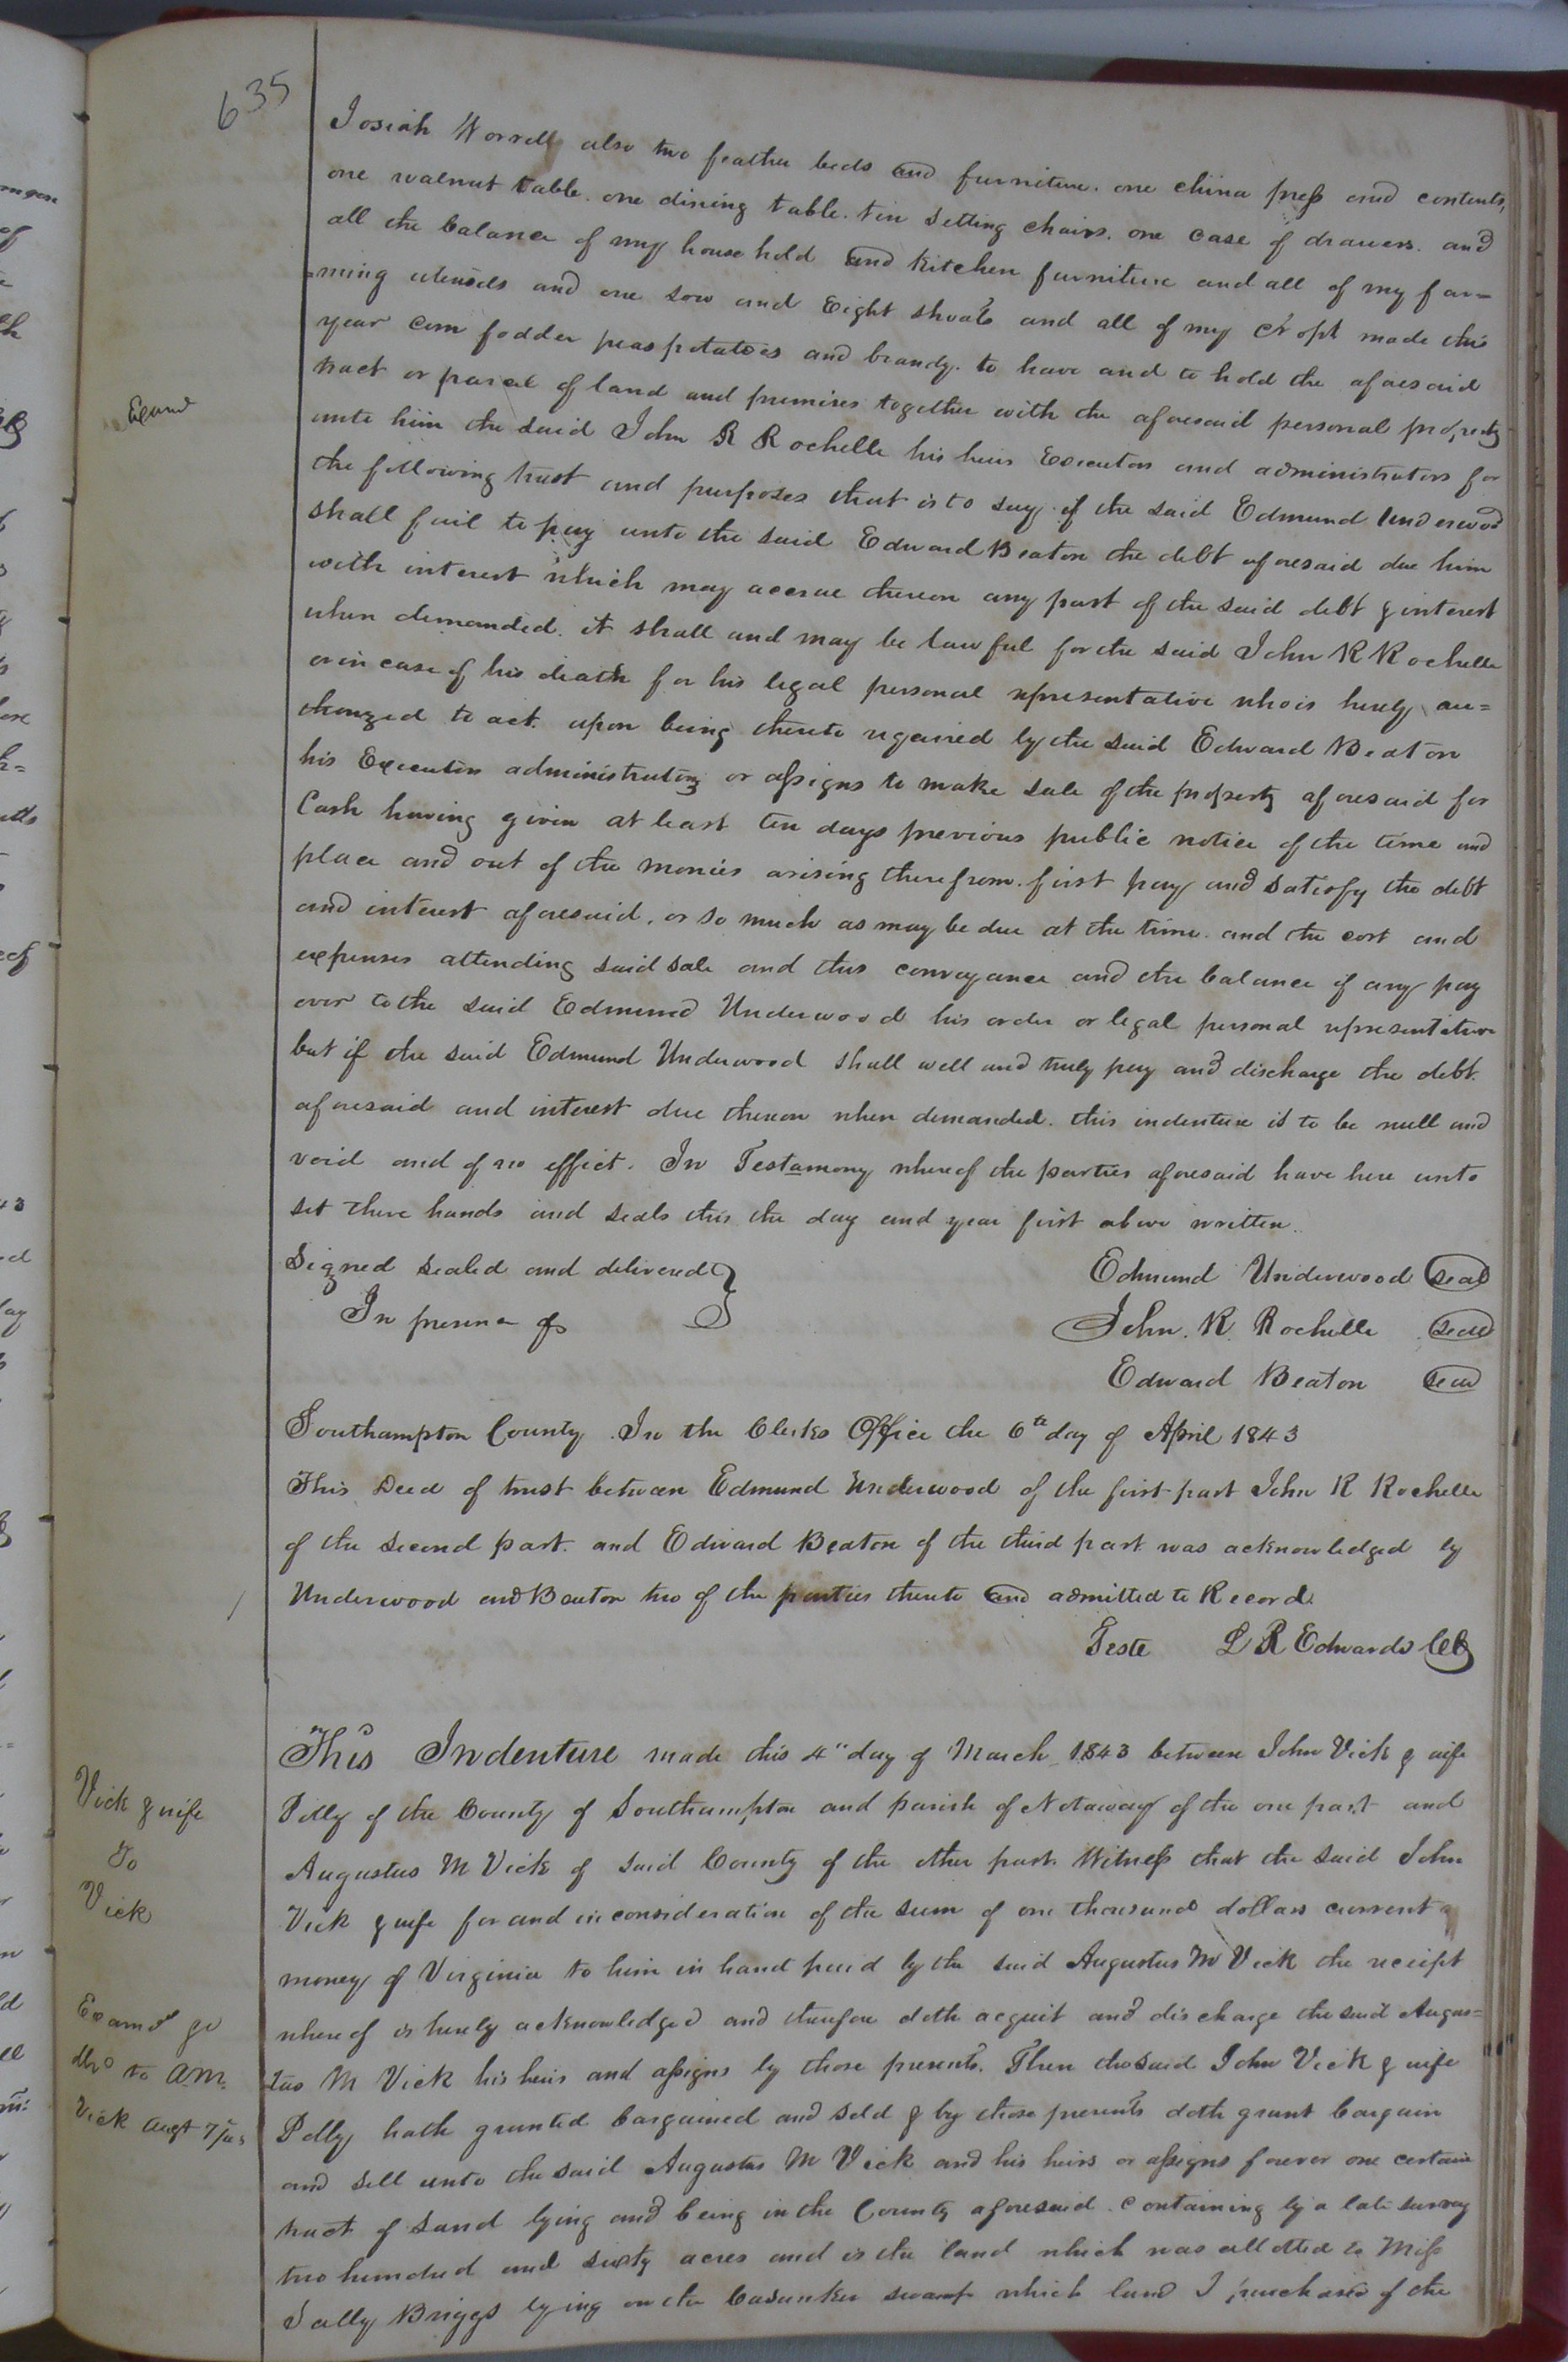 635
Josiah Worrell also two feather beds and furniture. one china press and contents,
one walnut table. one dining table. ten setting chairs. one case of drawers. and
all the balance of my house hold and kitchen furniture and all of my far=
=ming utensils and one sow and Eight shoats and all of my cropt made this
year corn fodder peas potatoes and brandy. to have and to hold the aforesaid
tract or parcel of land and premises together with the aforesaid personal property
Examd
unto him the said John R Rochelle his heirs Executors and administrators for
the following trust and purposes that is to say if the said Edmund Underwood
shall fail to pay unto the said Edward Beaton the debt aforesaid due him
with interest which may accrue thereon any part of the said debt & interest
when demanded. it shall and may be lawful for the said John R Rochelle
or in case of his death for his legal personal representative who is hereby au=
thorized to act. upon being thereto required by the said Edward Beaton
his Executors administrators or assigns to make sale of the property aforesaid for
Cash having given at least ten days previous public notice of the time and
place and out of the monies arising therefrom. first pay and satisfy the debt
and interest aforesaid. or so much as may be due at the time. and the cost and
expenses attending said sale and this conveyance and the balance if any pay
over to the said Edmund Underwood his order or legal personal representative
but if the said Edmund Underwood shall well and truly pay and discharge the debt.
aforesaid and interest due thereon when demanded. this indenture is to be null and
void and of no effect. In Testamony whereof the parties aforesaid have here unto
set there hands and seals this the day and year first above written.
Signed sealed and delivered
In presence of
Edmund Underwood seal
John. R. Rochelle seal
Edward Beaton seal
Southampton County. In the Clerks Office the 6th day of April 1843
This Deed of trust between Edmund Underwood of the first part John R Rochelle
of the second part. and Edward Beaton of the third part was acknowledged by
Underwood and Beaton two of the parties thereto and admitted to Record.
Teste L R Edwards CC
This Indenture made this 4" day of March 1843 between John Vick & wife
Polly of the County of Southampton and parish of Notaway of the one part and
Augustus M Vick of said County of the other part. Witness that the said John
Vick & wife for and in consideration of the sum of one thousand dollars current
money of Virginia to him in hand paid by the said Augustus M Vick the receipt
whereof is hereby acknowledged and therefore doth acquit and discharge the said Augus=
tus M Vick his heirs and assigns by those presents. Then the said John Vick & wife
Polly hath granted bargained and sold & by these presents doth grant bargain
and sell unto the said Augustus M Vick and his heirs or assigns forever one certain
tract of Land lying and being in the County aforesaid. containing by a late survey
two hundred and sixty acres and is the land which was allotted to Miss
Sally Briggs lying on the Casunker swamp which land I purchased of the
Vick & wife
To
Vick
Examd
to A.M.
Vick Augt 7/45